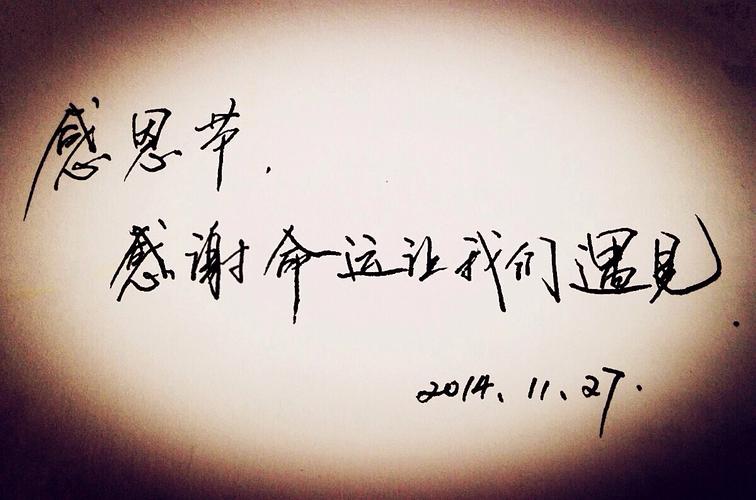 感恩节.
感谢命运让我们遇见.
2014.11.27.